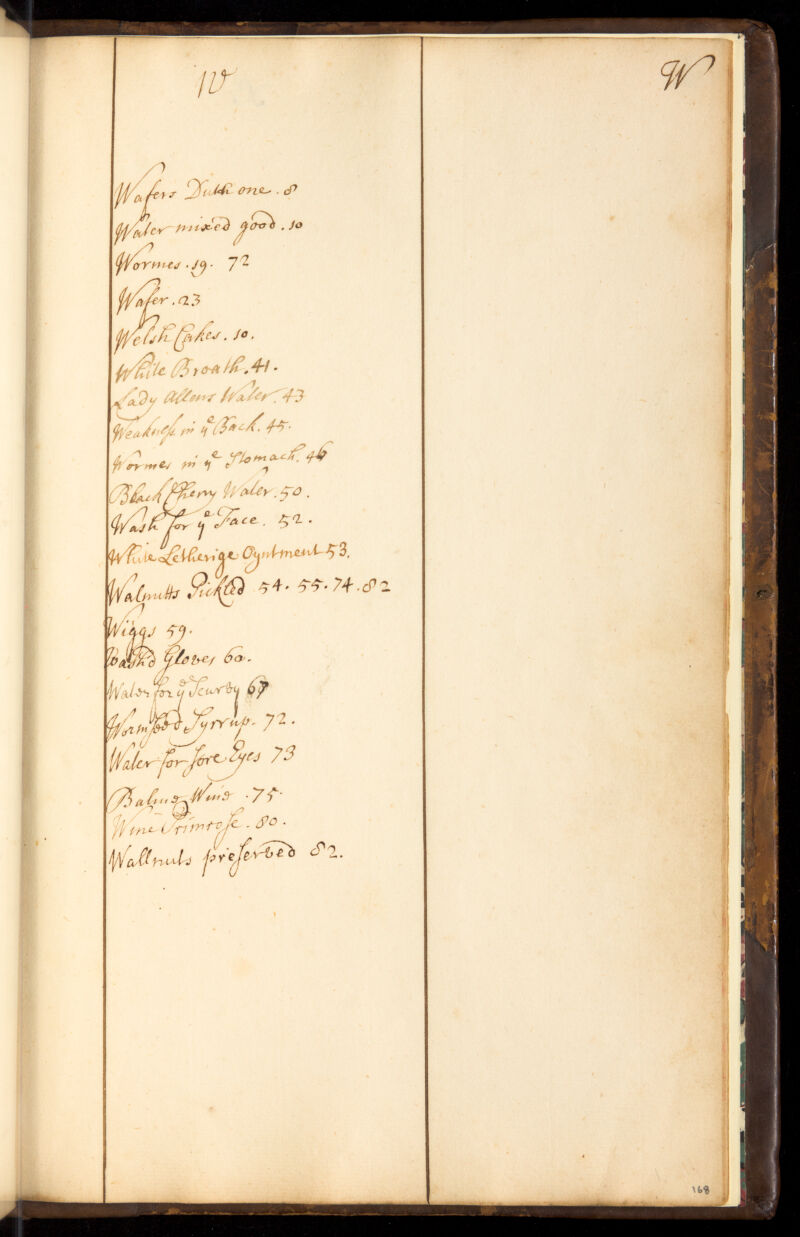 W
W
Wafers Dutch one . 8
Water mixed good . 10
Wormes . 19 . 72
Wafer . 23
Welsh Cakes . 10 .
White Broath . 41 .
Lady Allens Water . 43
Weakness in ye Back . 45 .
Wormes in ye Stomach . 46
Black Cherry Water . 50 .
Wash for ye Face . 52 .
White Letherige Oyntment 53 .
Walnutts Pickled 54 . 55 . 74 . 82
Wiggs 59 .
Wash'd Gloves 60 .
Water for ye Scurvy 67
Wormseed Syrrup . 72 .
Water for sore Eyes 73
Balme Wine . 75 .
Wine Primrose . 80 .
Wallnuts preserved 82 .
168